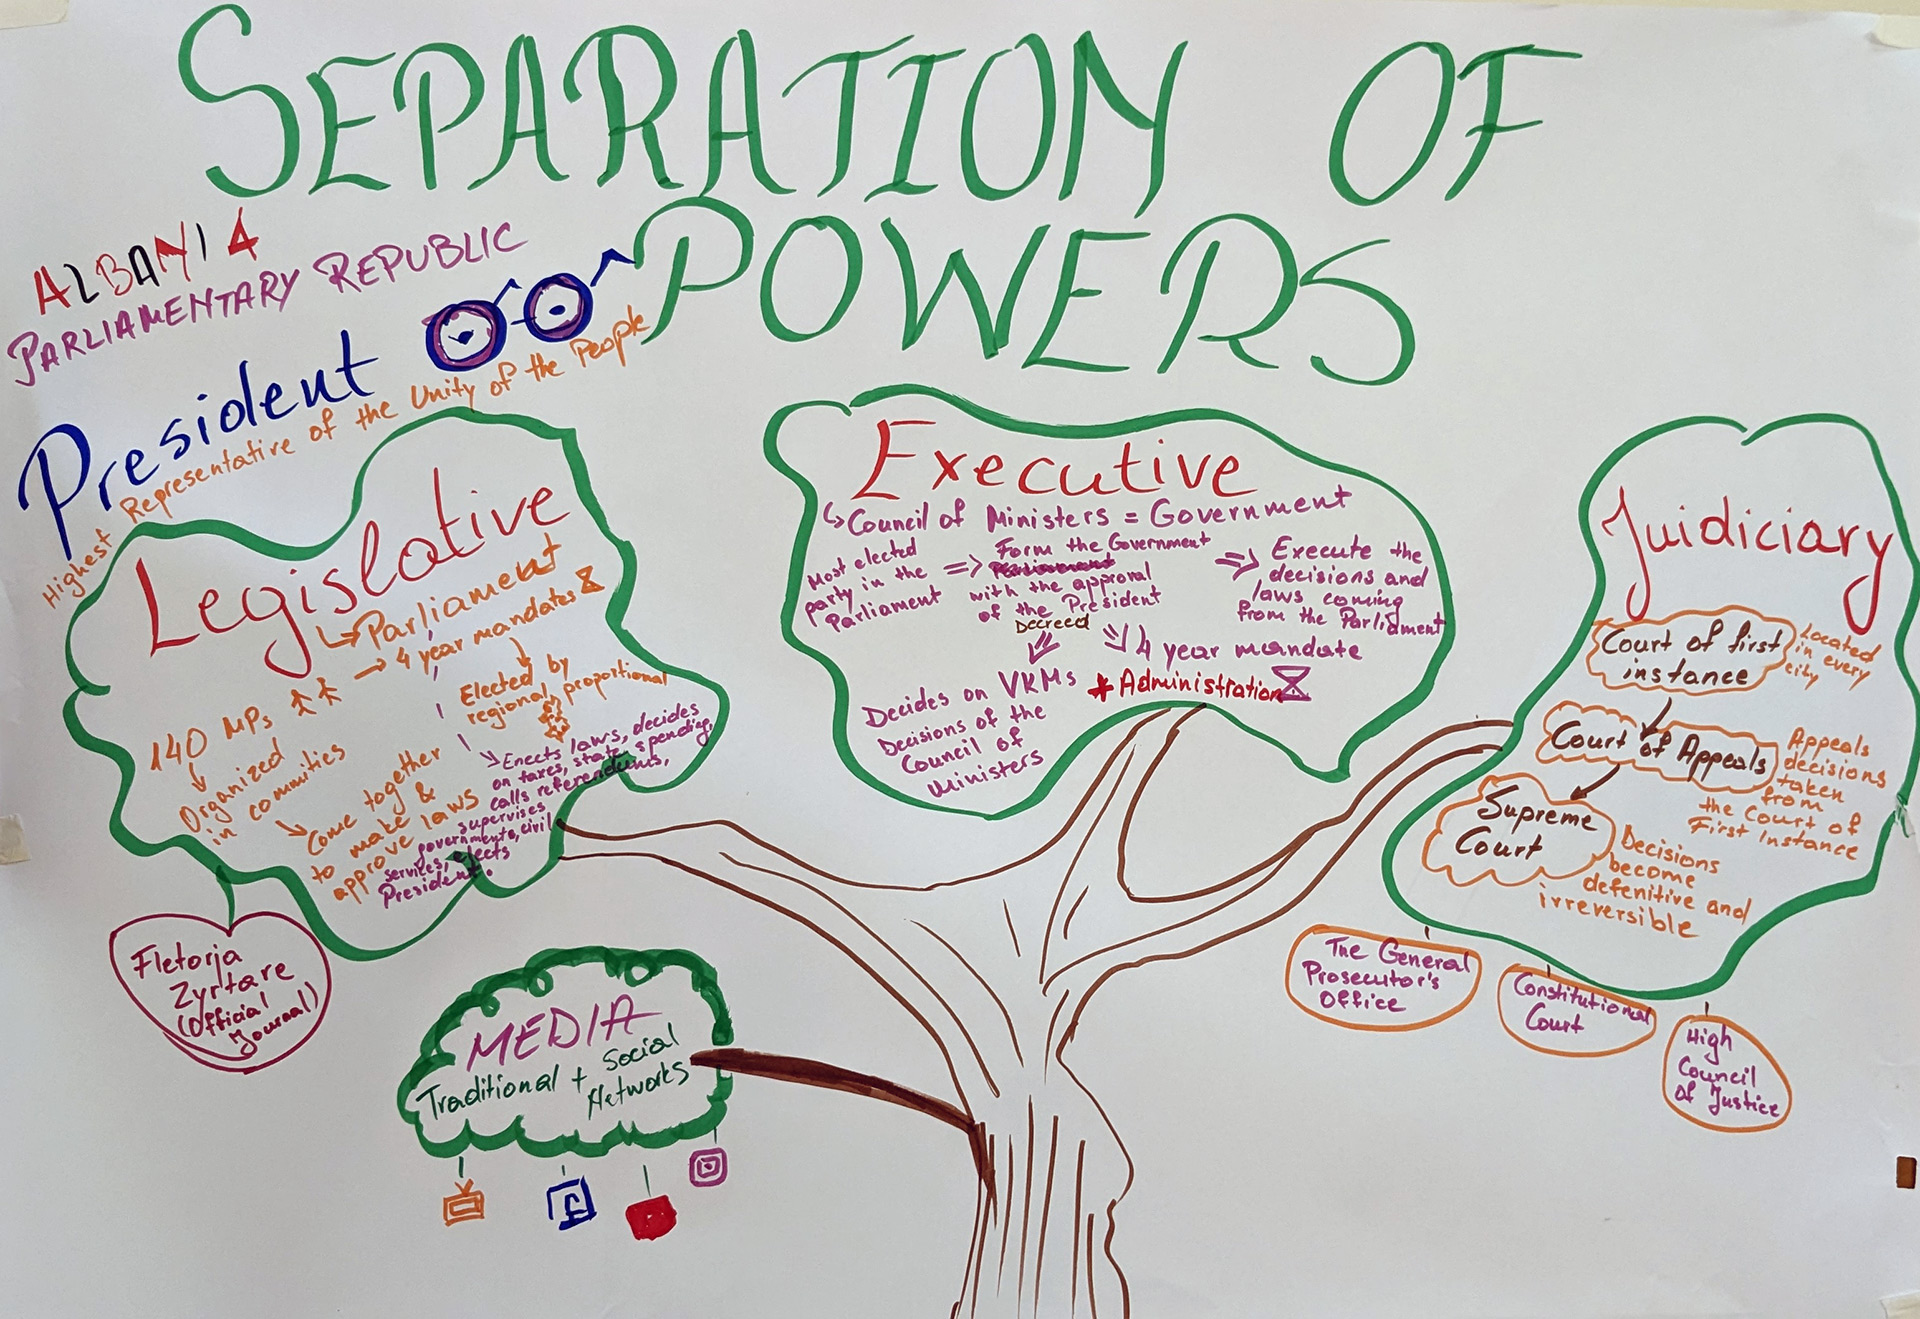 SEPARATION OF
POWERS
ALBANIA
PARLIAMENTARY REPUBLIC
President
Highest Representative of the Unity of the People
Legislative
↳ Parliament
→ 4 year mandates
140 MPs
Elected by
regional, proportional
Organized
in commities
Come together
to make &
approve laws
Enects laws, decides
on taxes, state spending,
calls referendums,
supervises
governments, civil
services, elects
President.
Fletorja
Zyrtare
(Official
Journal)
Executive
↳ Council of Ministers = Government
Most elected
party in the
Parliament
⇒ Form the Government
with the approval
of the President
Decreed
⇒ Execute the
decisions and
laws coming
from the Parliament
4 year mandate
* Administration
Decides on VKMs
Decisions of the
Council of
Ministers
Juidiciary
Court of first
instance
Located
in every
city
Court of Appeals
Appeals
decisions
taken
from
the Court of
First Instance
Supreme
Court
Decisions
become
defenitive and
irreversible
The General
Prosecutor's
Office
Constitutional
Court
High
Council
of Justice
MEDIA
Traditional + Social
Networks